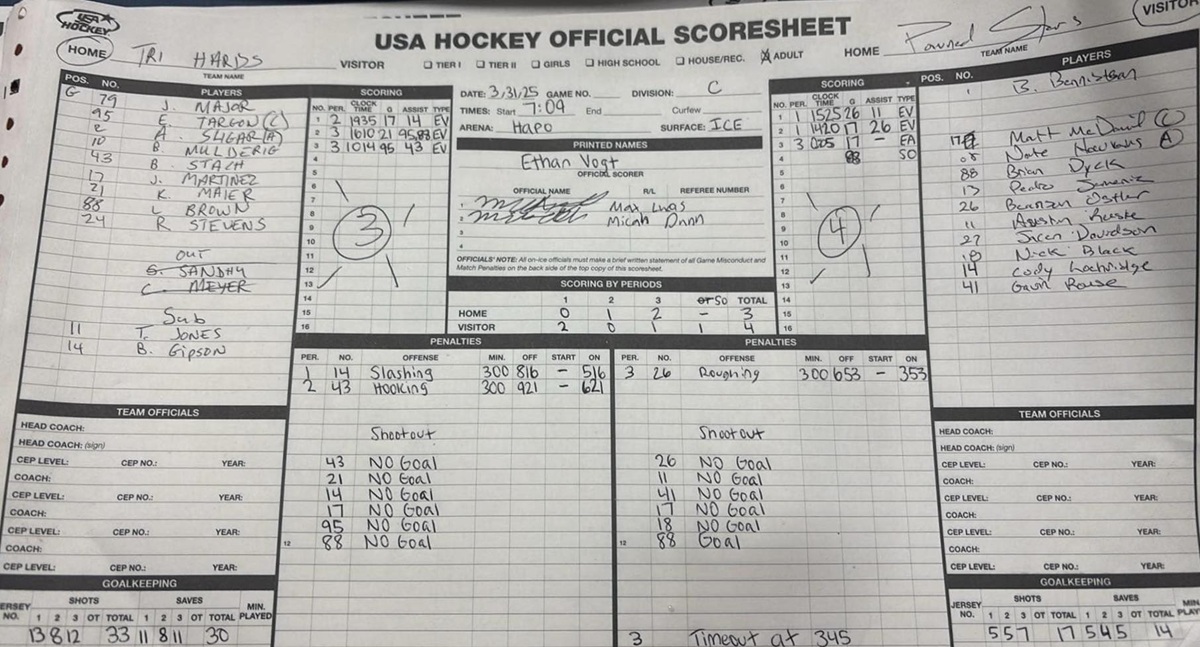 USA HOCKEY
USA HOCKEY OFFICIAL SCORESHEET
HOME TRI HARDS VISITOR
TEAM NAME
☐ TIER I ☐ TIER II ☐ GIRLS ☐ HIGH SCHOOL ☐ HOUSE/REC. ☒ ADULT
HOME Pawned Stars VISITOR
TEAM NAME
POS. NO. PLAYERS
G 79 J. MAJOR
95 E. TARGON (C)
2 A. SLIGAR (A)
10 B. MULDERIG
43 B. STACH
17 J. MARTINEZ
21 K. MAIER
88 L. BROWN
24 R STEVENS
OUT
G. SANDHY
C. MEYER
Sub
11 T. JONES
14 B. GIPSON
SCORING
NO. PER. CLOCK TIME G ASSIST TYPE
1 2 1935 17 14 EV
2 3 1610 21 95,88 EV
3 3 1014 95 43 EV
4
5
6
7
8
9
10
11
12
13
14
15
16
3
DATE: 3/31/25 GAME NO. DIVISION: C
TIMES: Start 7:09 End Curfew
ARENA: Hapo SURFACE: ICE
PRINTED NAMES
Ethan Vogt
OFFICIAL SCORER
OFFICIAL NAME R/L REFEREE NUMBER
1 Max Lucas
2 Micah Dunn
3
4
OFFICIALS' NOTE: All on-ice officials must make a brief written statement of all Game Misconduct and
Match Penalties on the back side of the top copy of this scoresheet.
SCORING BY PERIODS
1 2 3 OT SO TOTAL
HOME 0 1 2 - 3
VISITOR 2 0 1 1 4
SCORING
NO. PER. CLOCK TIME G ASSIST TYPE
1 1 1525 26 11 EV
2 1 1420 17 26 EV
3 3 005 17 - EA
4 88 SO
5
6
7
8
9
10
11
12
13
14
15
16
4
POS. NO. PLAYERS
1 B. Bannister
17 Matt McDanil (C)
08 Nate (A)
88 Brian Dyck
13 Pedro Jimenez
26 Brenson Ostler
11 Austin
27 Jaren Davidson
18 Nick Black
14 Cody Lochridge
41 Gavin Rouse
PENALTIES
PER. NO. OFFENSE MIN. OFF START ON
1 14 Slashing 300 816 - 516
2 43 Hooking 300 921 - 621
Shootout
43 NO Goal
21 NO Goal
14 NO Goal
17 NO Goal
95 NO Goal
12 88 NO Goal
PENALTIES
PER. NO. OFFENSE MIN. OFF START ON
3 26 Roughing 300 653 - 353
Shootout
26 NO Goal
11 NO Goal
41 NO Goal
17 NO Goal
18 NO Goal
12 88 Goal
3 Timeout at 345
TEAM OFFICIALS
HEAD COACH:
HEAD COACH: (sign)
CEP LEVEL: CEP NO.: YEAR:
COACH:
CEP LEVEL: CEP NO.: YEAR:
COACH:
CEP LEVEL: CEP NO.: YEAR:
COACH:
CEP LEVEL: CEP NO.: YEAR:
GOALKEEPING
JERSEY NO. SHOTS 1 2 3 OT TOTAL SAVES 1 2 3 OT TOTAL MIN. PLAYED
13 8 12 33 11 8 11 30
TEAM OFFICIALS
HEAD COACH:
HEAD COACH: (sign)
CEP LEVEL: CEP NO.: YEAR:
COACH:
CEP LEVEL: CEP NO.: YEAR:
COACH:
CEP LEVEL: CEP NO.: YEAR:
COACH:
CEP LEVEL: CEP NO.: YEAR:
GOALKEEPING
JERSEY NO. SHOTS 1 2 3 OT TOTAL SAVES 1 2 3 OT TOTAL MIN PLAY
5 5 7 17 5 4 5 14